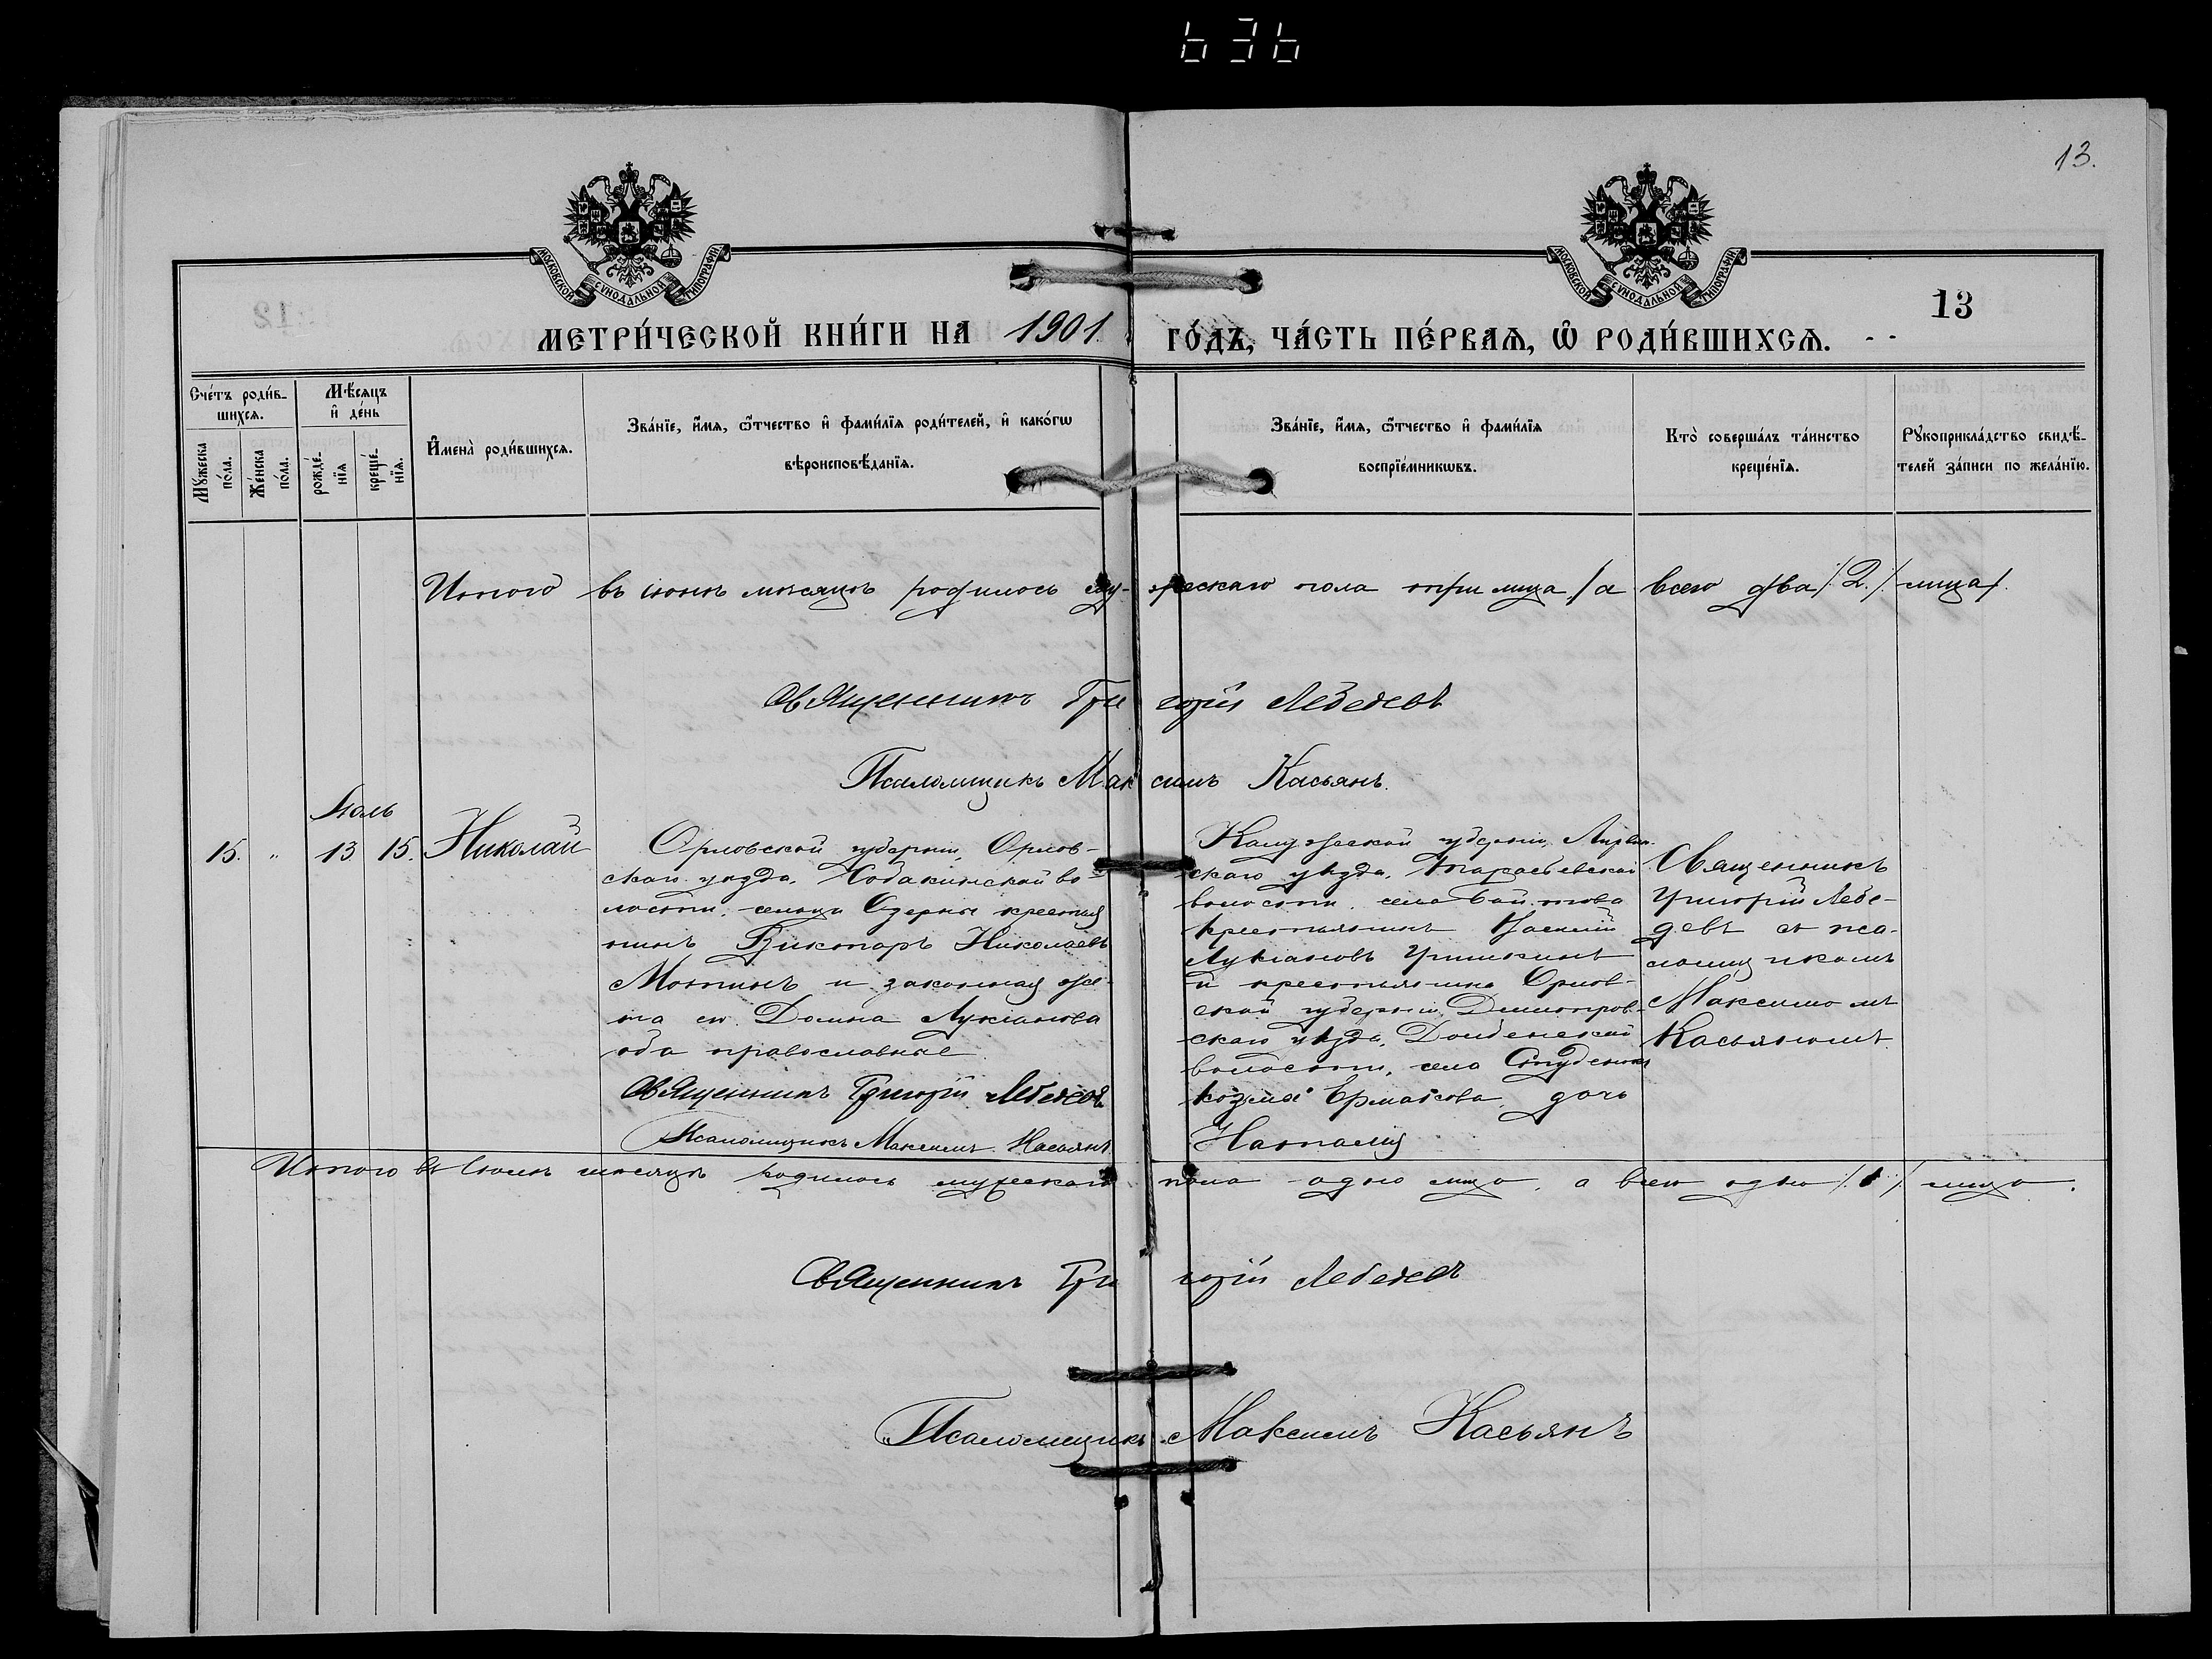 636
13.
13
МОСКОВСКОЙ СѴНОДАЛЬНОЙ ТИПОГРАФІИ
МОСКОВСКОЙ СѴНОДАЛЬНОЙ ТИПОГРАФІИ
МЕТРИ́ЧЕСКОЙ КНИ́ГИ НА 1901 ГО́ДЪ, ЧА́СТЬ ПЕ́РВАѦ, Ѡ҆ РОДИ́ВШИХСѦ.
Сче́тъ роди́в-
шихсѧ.
Мꙋ́жеска по́ла.
Же́нска по́ла.
Мѣ́сѧцъ
и҆ де́нь
рожде́-нїѧ
креще́-нїѧ.
И҆мена̀ роди́вшихсѧ.
Зва́нїе, и҆́мѧ, ѻ҆́тчество и҆ фами́лїѧ роди́телей, и҆ како́гѡ
вѣроисповѣ́данїѧ.
Зва́нїе, и҆́мѧ, ѻ҆́тчество и҆ фами́лїѧ
воспрїе́мникѡвъ.
Кто̀ соверша́лъ та́инство
креще́нїѧ.
Рꙋкоприкла́дство свидѣ́-
телей за́писи по жела́нїю.
Итого въ іюнѣ мѣсяцѣ родилось му-жескаго пола три лица /а всего два /.2./ лица/.
Священникъ Григорій Лебедевъ
Псаломщикъ Максимъ Касьянъ.
Іюль
15. " 13 15. Николай
Орловской губерніи, Орлов-
скаго уѣзда,
лости,
нинъ Викторъ Николаевъ
Мотинъ и законная же-
на ея Домна Лукіанова
оба православные.
Священникъ Григорій Лебедевъ
Псаломщикъ Максимъ Касьянъ
Калужской губерніи,
скаго уѣзда,
волости, села
крестьянинъ Василій
Лукіановъ Гришкинъ
и крестьянина Орлов-
ской губерніи, Дмитров-
скаго уѣзда,
волости, села
Козмы Ермакова дочь
Наталія
Священникъ
Григорій Лебе-
девъ съ пса-
ломщикомъ
Максимомъ
Касьяномъ
Итого въ іюлѣ мѣсяцѣ родилось мужескаго пола одно лицо, а всего одно /.1./ лицо.
Священникъ Григорій Лебедевъ
Псаломщикъ Максимъ Касьянъ